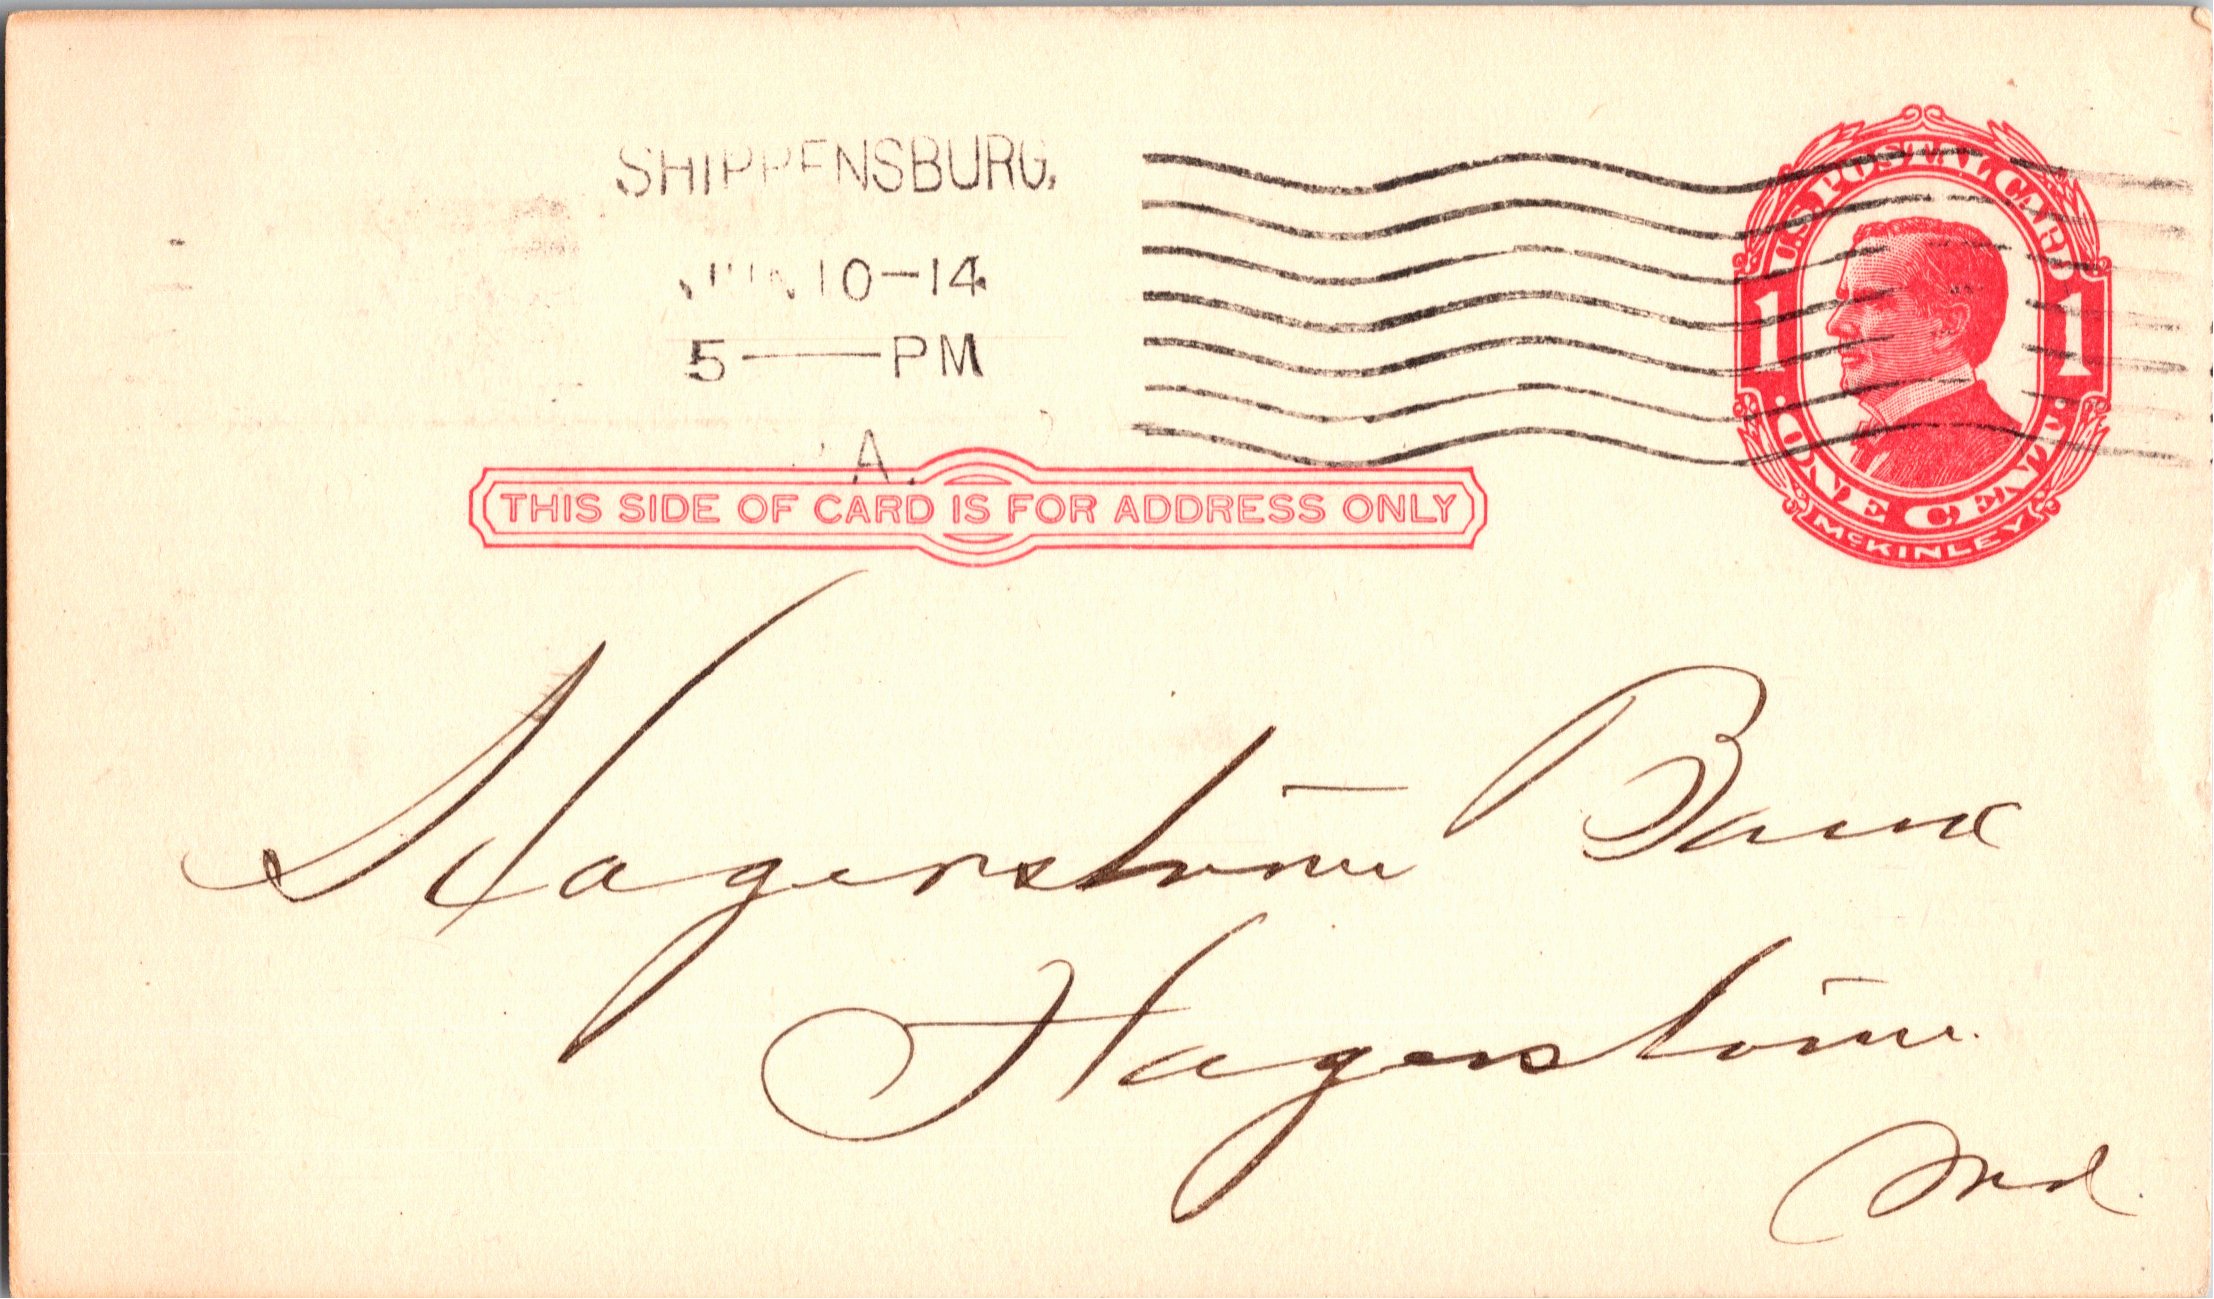 SHIPPENSBURG,
JUN 10-14
5 — PM
A.
U.S. POSTAL CARD
1 1
· ONE CENT ·
McKINLEY
THIS SIDE OF CARD IS FOR ADDRESS ONLY
Hagerstown Bank
Hagerstown
Md.